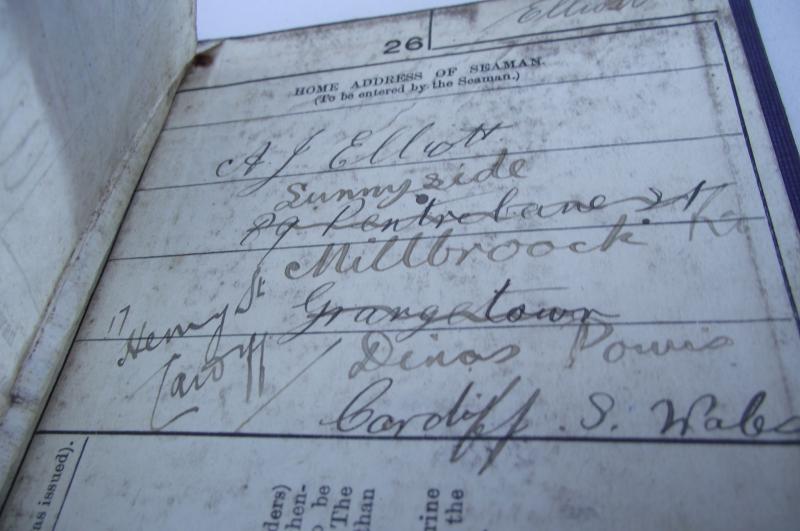 Elliott
26
HOME ADDRESS OF SEAMAN.
(To be entered by the Seaman.)
A J Elliott
Sunnyside
89 Pentrebane St
Millbroock Rd
Grangetown
17 Henry St
Cardiff
Dinas Powis
Cardiff. S. Wales
as issued).
ders)
hen-
o be
The
than
rine
the